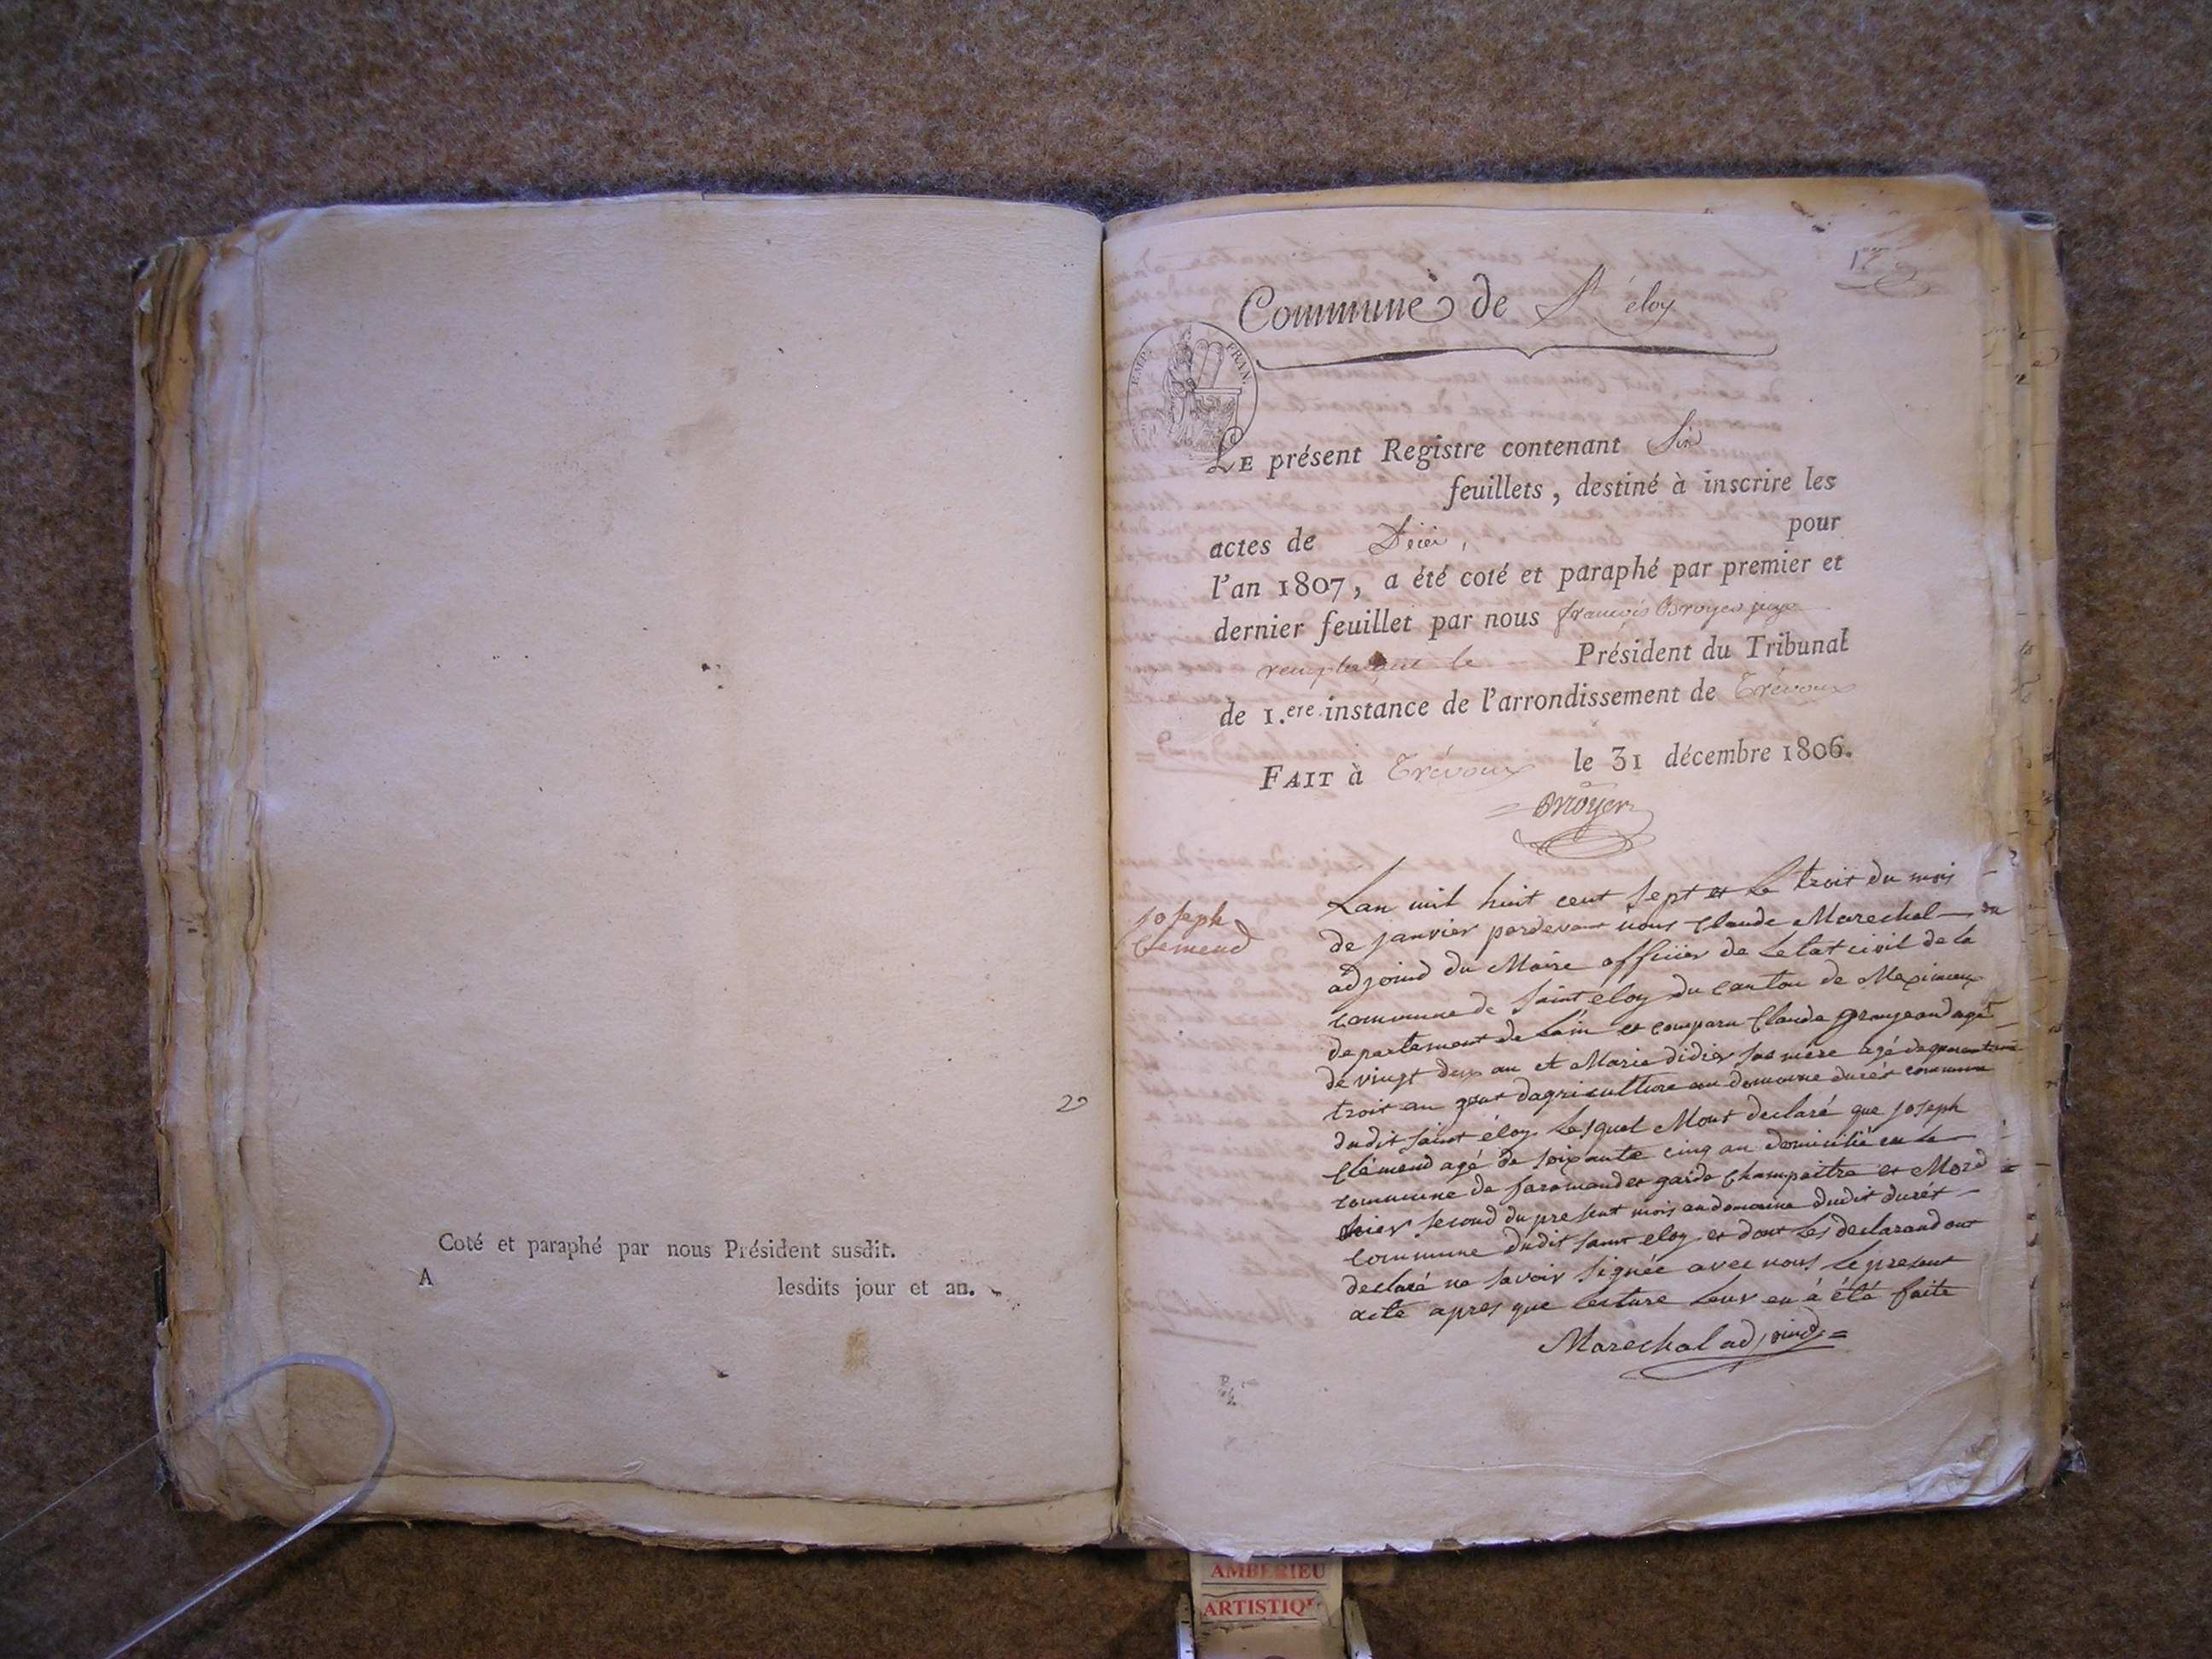 Coté et paraphé par nous Président susdit.
A lesdits jour et an.
1er
Commune de St éloy
EMP. FRAN.
LE présent Registre contenant Six
feuillets, destiné à inscrire les
actes de Décès, pour
l'an 1807, a été coté et paraphé par premier et
dernier feuillet par nous françois Brroyer juge
remplaçant le Président du Tribunal
de 1.ere instance de l'arrondissement de Trévoux
FAIT à Trévoux le 31 décembre 1806.
Brroyer
joseph
Clemend
Lan mil huit cent sept et le troit du mois
de janvier pardevant nous Claude Marechal
adjoind du Maire officier de Letat civil de la
commune de saint éloy du canton de Meximieux
departement de Lain et comparu Claude granjeand agé
de vingt deux an et Marie didier sae mère agé de quarente
troit an tout dagriculture au domaine durét commune
dudit saint éloy Lesquel Mont declaré que joseph
Clémend agé de soixante cinq an domicilié en la
commune de faramand et garde champaitre et Mord
hier second du present mois au domaine dudit durét
commune dudit saint eloy et dont Les declarand ont
declaré ne savoir signée avec nous Le present
acte apres que lecture Leur en à été faite
Marechal adjoind
AMBERIEU
ARTISTIQ